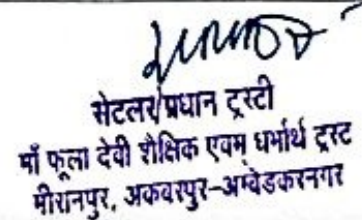 सेटलर/प्रधान ट्रस्टी
माँ फूला देवी शैक्षिक एवम धर्मार्थ ट्रस्ट
मीरानपुर, अकबरपुर-अम्बेडकरनगर